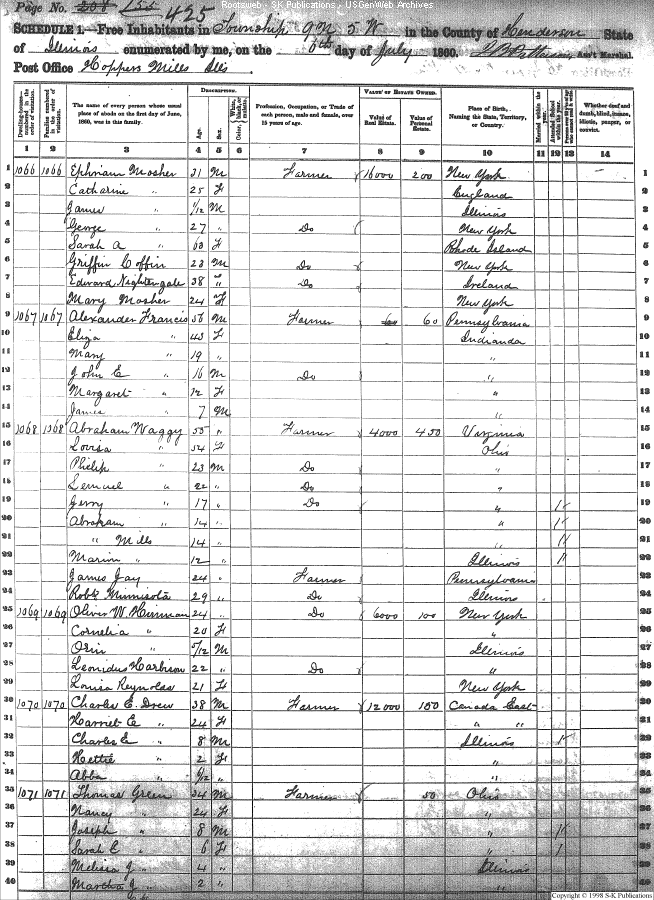 Rootsweb - SK Publications / USGenWeb Archives
Page No. 208 155 425
SCHEDULE 1.—Free Inhabitants in Township 9 N 5 W in the County of Henderson State
of Illinois enumerated by me, on the 6th day of July 1860. Ass't Marshal.
Post Office Hoppers Mills Ills
Dwelling-houses numbered in the order of visitation.
Families numbered in the order of visitation.
The name of every person whose usual place of abode on the first day of June, 1860, was in this family.
DESCRIPTION.
Age.
Sex.
Color, White, black, or mulatto.
Profession, Occupation, or Trade of each person, male and female, over 15 years of age.
VALUE OF ESTATE OWNED.
Value of Real Estate.
Value of Personal Estate.
Place of Birth, Naming the State, Territory, or Country.
Married within the year.
Attended School within the year.
Whether deaf and dumb, blind, insane, idiotic, pauper, or convict.
1 2 3 4 5 6 7 8 9 10 11 12 13 14
1 1066 1066 Ephriam Mosher 31 M Farmer 16000 200 New York 1
2 Catharine " 25 F England 2
3 James " 1/12 M Illinois 3
4 George " 27 " Do New York 4
5 Sarah A " 63 F Rhode Island 5
6 Griffin Coffin 23 M Do New York 6
7 Edward Nightengale 38 " Do Ireland 7
8 Mary Mosher 24 F New York 8
9 1067 1067 Alexander Francis 56 M Farmer 60 Pennsylvania 9
10 Eliza " 43 F Indianda 10
11 Mary " 19 " " 11
12 John E " 16 M Do " 12
13 Margaret " 12 F " 13
14 James " 7 M " 14
15 1068 1068 Abraham Waggy 55 " Farmer 4000 450 Virginia 15
16 Lovisa " 54 F Ohio 16
17 Philip " 23 M Do " 17
18 Lemuel " 22 " Do " 18
19 Jerry " 17 " Do " 19
20 Abraham " 14 " " 20
21 " Mills 14 " " 21
22 Marion " 12 " Illinois 22
23 James Jay 24 " Farmer Pennsylvania 23
24 Robt Minnisota 29 " Do Illinois 24
25 1069 1069 Oliver W. Hinman 24 " Do 6000 100 New York 25
26 Cornelia " 20 F " 26
27 Orin " 5/12 M Illinois 27
28 Leonidus Harbison 22 " Do " 28
29 Louisa Reynolds 21 F New York 29
30 1070 1070 Charles E. Drew 38 M Farmer 12000 150 Canada East 30
31 Harriet E " 24 F " " 31
32 Charles E " 8 M Illinois 32
33 Hettie " 2 F " 33
34 Abba " " " 34
35 1071 1071 Thomas Green 34 M Farmer 50 Ohio 35
36 Nancy " 24 F " 36
37 Joseph " 8 M " 37
38 Sarah E " 6 F " 38
39 Melissa J " 4 " Illinois 39
40 Martha J " 2 " " 40
Copyright © 1998 S-K Publications